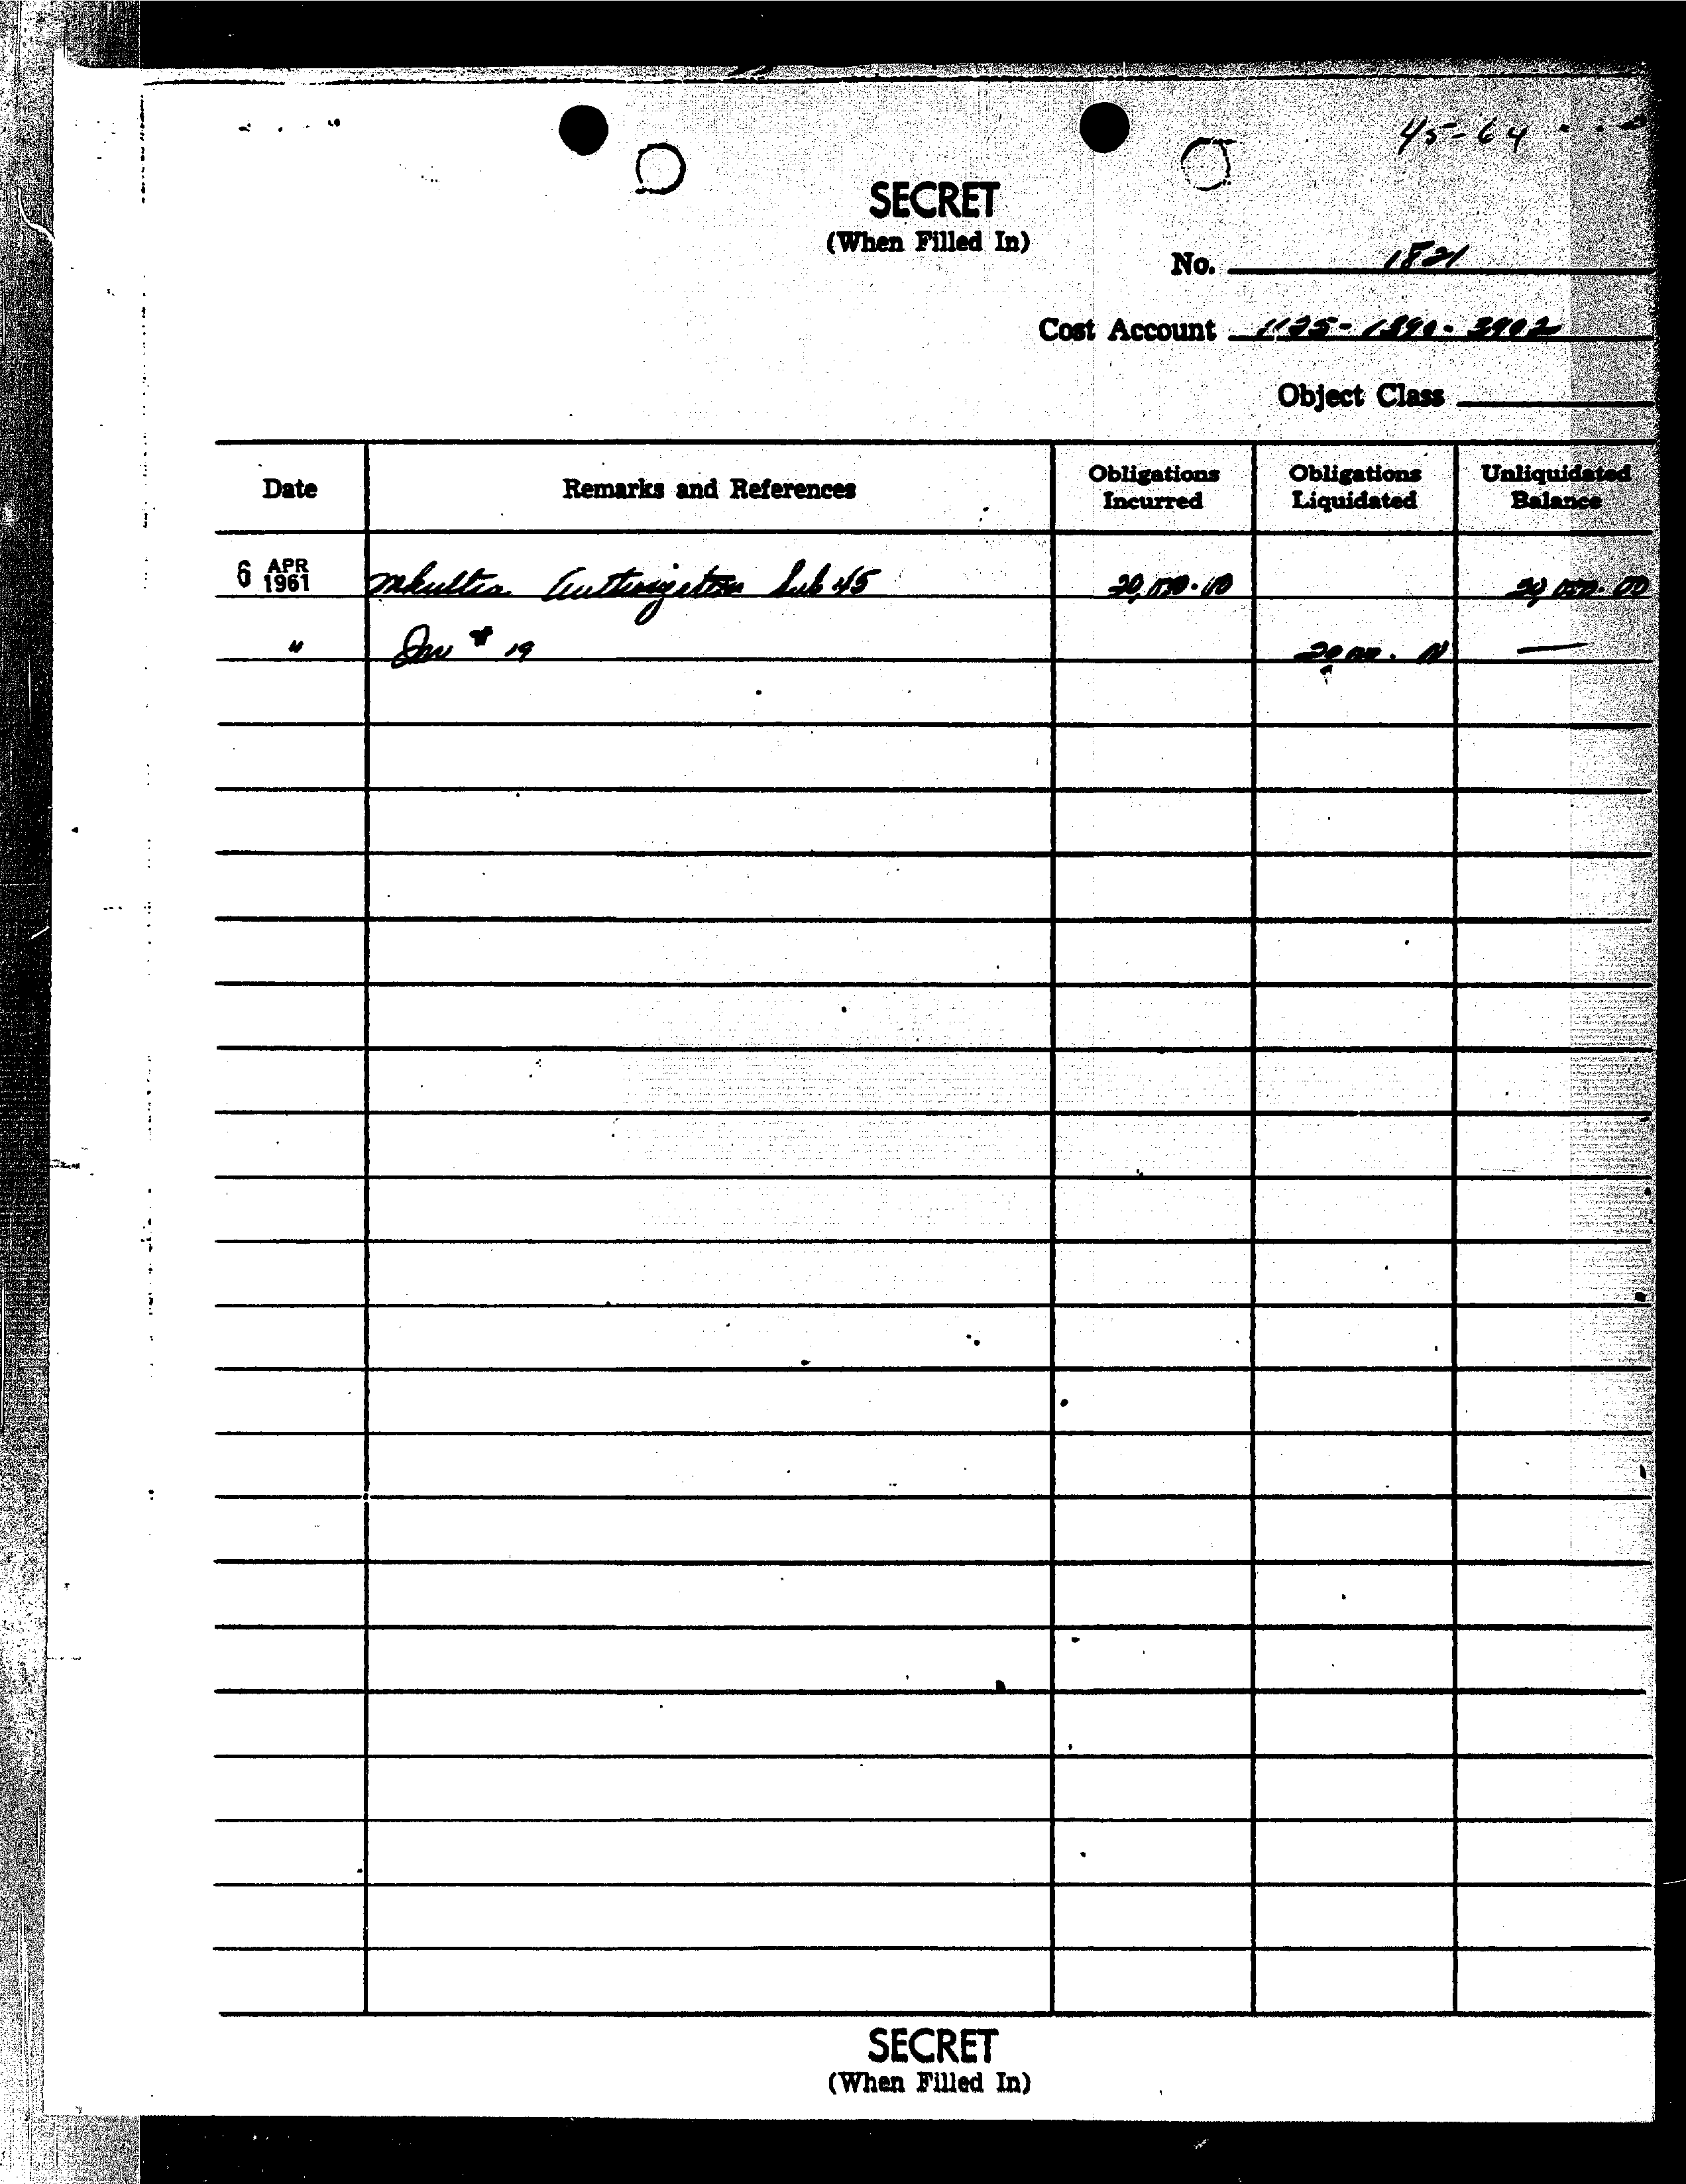 45-64
SECRET
(When Filled In)
No. 1821
Cost Account 1125-1390-3902
Object Class
Date Remarks and References Obligations Incurred Obligations Liquidated Unliquidated Balance
6 APR 1961 Mkultra Authorization Sub 45 20,000.00 20,000.00
" Inv # 19 20,000. —
SECRET
(When Filled In)